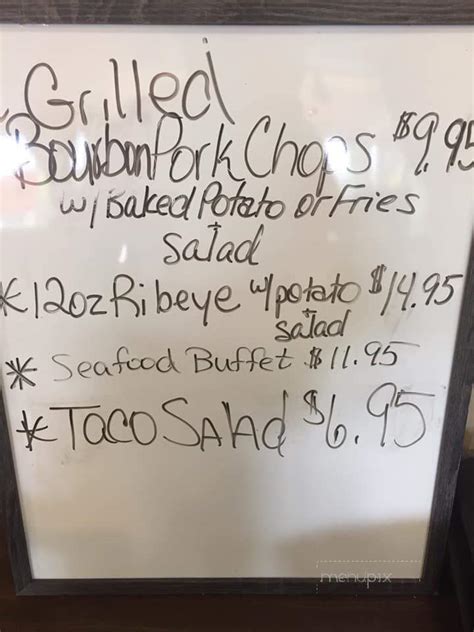 * Grilled
Bourbon Pork Chops $9.95
w/Baked Potato or Fries
+
Salad
* 12oz Ribeye w/potato $14.95
+
salad
* Seafood Buffet $11.95
* Taco Salad $6.95
menupix